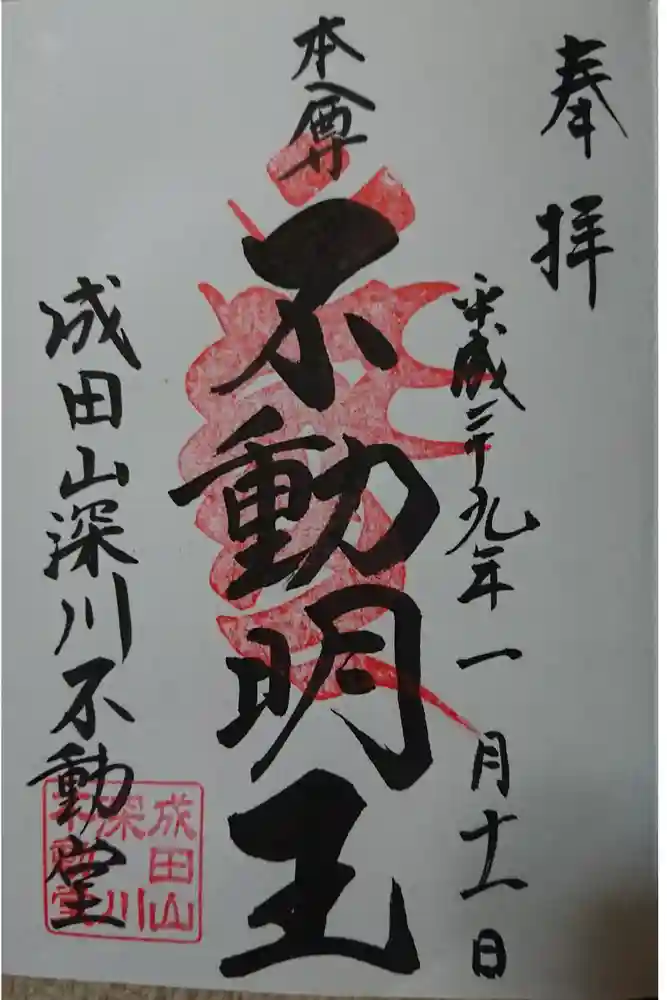 奉拝
平成二十九年一月十一日
本尊
不動明王
成田山深川不動堂
成田山
深川
不動堂